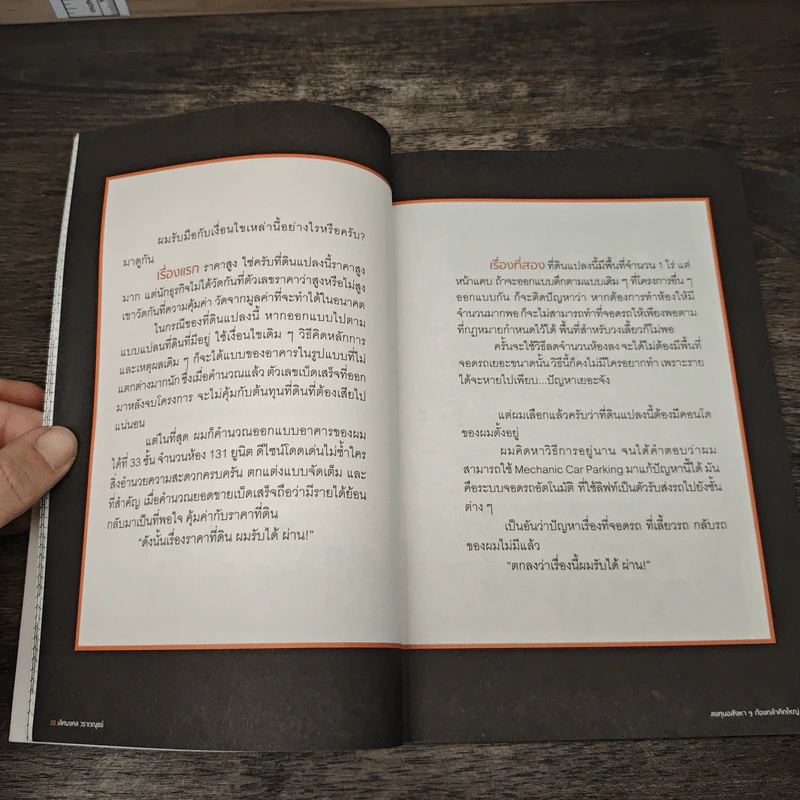 ผมรับมือกับเงื่อนไขเหล่านี้อย่างไรหรือครับ?
มาดูกัน
เรื่องแรก ราคาสูง ใช่ครับที่ดินแปลงนี้ราคาสูง
มาก แต่นักธุรกิจไม่ได้วัดกันที่ตัวเลขราคาว่าสูงหรือไม่สูง
เขาวัดกันที่ความคุ้มค่า วัดจากมูลค่าที่จะทำได้ในอนาคต
ในกรณีของที่ดินแปลงนี้ หากออกแบบไปตาม
แบบแปลนที่ดินที่มีอยู่ ใช้เงื่อนไขเดิม ๆ วิธีคิดหลักการ
และเหตุผลเดิม ๆ ก็จะได้แบบของอาคารในรูปแบบที่ไม่
แตกต่างมากนัก ซึ่งเมื่อคำนวณแล้ว ตัวเลขเบ็ดเสร็จที่ออก
มาหลังจบโครงการ จะไม่คุ้มกับต้นทุนที่ดินที่ต้องเสียไป
แน่นอน
แต่ในที่สุด ผมก็คำนวณออกแบบอาคารของผม
ได้ที่ 33 ชั้น จำนวนห้อง 131 ยูนิต ดีไซน์โดดเด่นไม่ซ้ำใคร
สิ่งอำนวยความสะดวกครบครัน ตกแต่งแบบจัดเต็ม และ
ที่สำคัญ เมื่อคำนวณยอดขายเบ็ดเสร็จถือว่ามีรายได้ย้อน
กลับมาเป็นที่พอใจ คุ้มค่ากับราคาที่ดิน
"ดังนั้นเรื่องราคาที่ดิน ผมรับได้ ผ่าน!"
10 เลิศมงคล วราเวณุชย์
เรื่องที่สอง ที่ดินแปลงนี้มีพื้นที่จำนวน 1 ไร่ แต่
หน้าแคบ ถ้าจะออกแบบตึกตามแบบเดิม ๆ ที่โครงการอื่น ๆ
ออกแบบกัน ก็จะติดปัญหาว่า หากต้องการทำห้องให้มี
จำนวนมากพอ ก็จะไม่สามารถทำที่จอดรถให้เพียงพอตาม
ที่กฎหมายกำหนดไว้ได้ พื้นที่สำหรับวงเลี้ยวก็ไม่พอ
ครั้นจะใช้วิธีลดจำนวนห้องลง จะได้ไม่ต้องมีพื้นที่
จอดรถเยอะขนาดนั้น วิธีนี้ก็คงไม่มีใครอยากทำ เพราะราย
ได้จะหายไปเพียบ...ปัญหาเยอะจัง
แต่ผมเลือกแล้วครับว่าที่ดินแปลงนี้ต้องมีคอนโด
ของผมตั้งอยู่
ผมคิดหาวิธีการอยู่นาน จนได้คำตอบว่าผม
สามารถใช้ Mechanic Car Parking มาแก้ปัญหานี้ได้ มัน
คือระบบจอดรถอัตโนมัติ ที่ใช้ลิฟท์เป็นตัวรับส่งรถไปยังชั้น
ต่าง ๆ
เป็นอันว่าปัญหาเรื่องที่จอดรถ ที่เลี้ยวรถ กลับรถ
ของผมไม่มีแล้ว
"ตกลงว่าเรื่องนี้ผมรับได้ ผ่าน!"
ลงทุนอสังหา ๆ ต้องกล้าคิดใหญ่